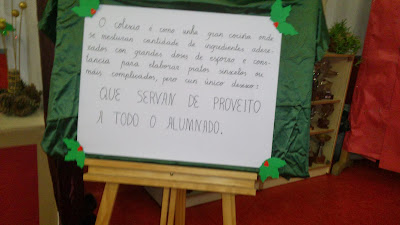 O colexio é como unha gran cociña onde
se mesturan cantidade de ingredientes adere-
zados con grandes doses de esforzo e cons-
tancia para elaborar pratos sinxelos ou
máis complicados, pero cun único desexo:
QUE SERVAN DE PROVEITO
A TODO O ALUMNADO.